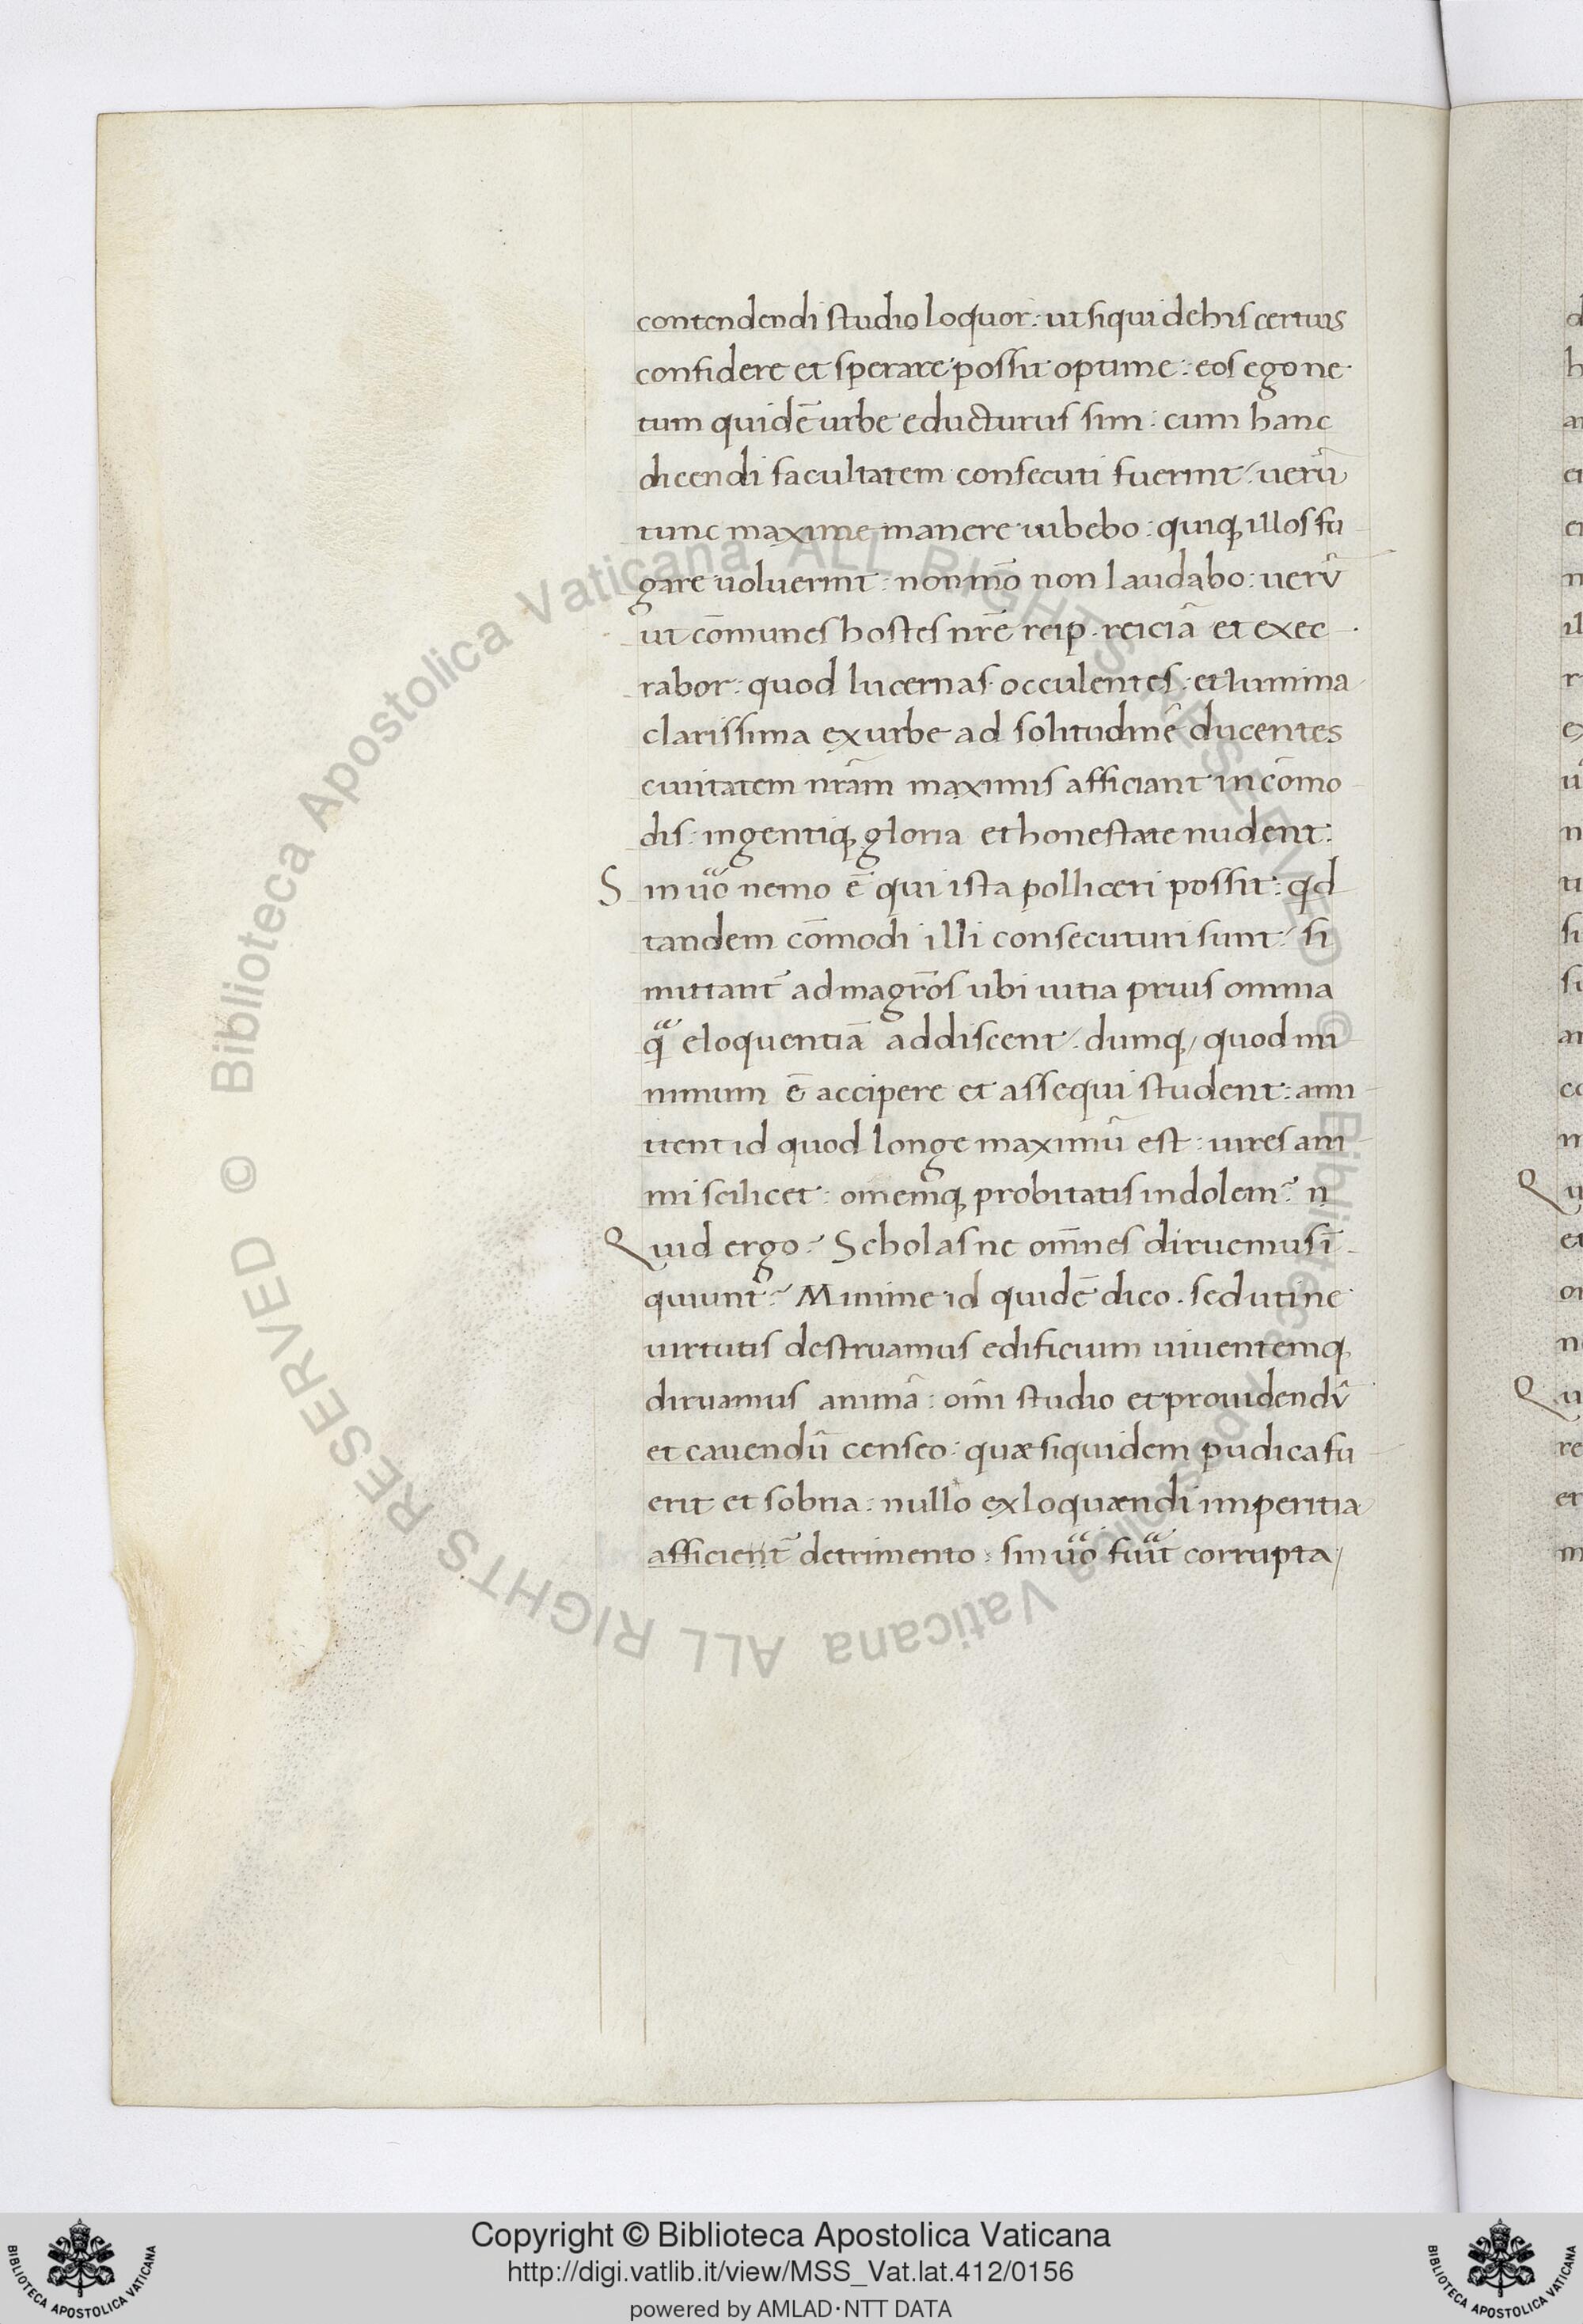 contendendi studio loquor: ut siqui de his certius
confidere et sperare possit optime: eos ego ne
tum quidē urbe educturus sim: cum hanc
dicendi facultatem consecuti fuerint / uerū
tunc maxime manere iubebo: quiq; illos fu
gare uoluerint: non mō non laudabo: uerū
ut cōmunes hostes nrē reip. reiciā et exec
rabor: quod lucernas occulentes: et lumina
clarissima ex urbe ad solitudinē ducentes
ciuitatem nrām maximis afficiant incōmo
dis: ingentiq; gloria et honestate nudent:
Sin uo nemo ē qui ista polliceri possit: qd
tandem cōmodi illi consecuturi sunt / si
mittant̄ ad magrōs ubi uitia prius omnia
q̄ eloquentiā addiscent / dumq; quod mi
nimum ē accipere et assequi student: ami
ttent id quod longe maximū est: uires ani
mi scilicet: omēmq; probitatis indolem? n
Quid ergo? Scholas ne om̄nes diruemus ī
quiunt? Minime id quidē dico. sed uti ne
uirtutis destruamus edificium uiuentemq;
diruamus animā: om̄i studio et prouidendū
et cauendū censeo: quæ siquidem pudica fu
erit et sobria: nullo ex loquændi imperitia
afficient̄ detrimento: sin uo fuit corrupta /
d
h
a
et
e
n
il
r
ex
u
n
ti
si
si
a
co
m
Qu
et
o
n
Qu
re
er
m
© Biblioteca Apostolica Vaticana ALL RIGHTS RESERVED © Biblioteca Apostolica Vaticana ALL RIGHTS RESERVED
Copyright © Biblioteca Apostolica Vaticana
http://digi.vatlib.it/view/MSS_Vat.lat.412/0156
powered by AMLAD·NTT DATA
BIBLIOTECA APOSTOLICA VATICANA
BIBLIOTECA APOSTOLICA VATICANA